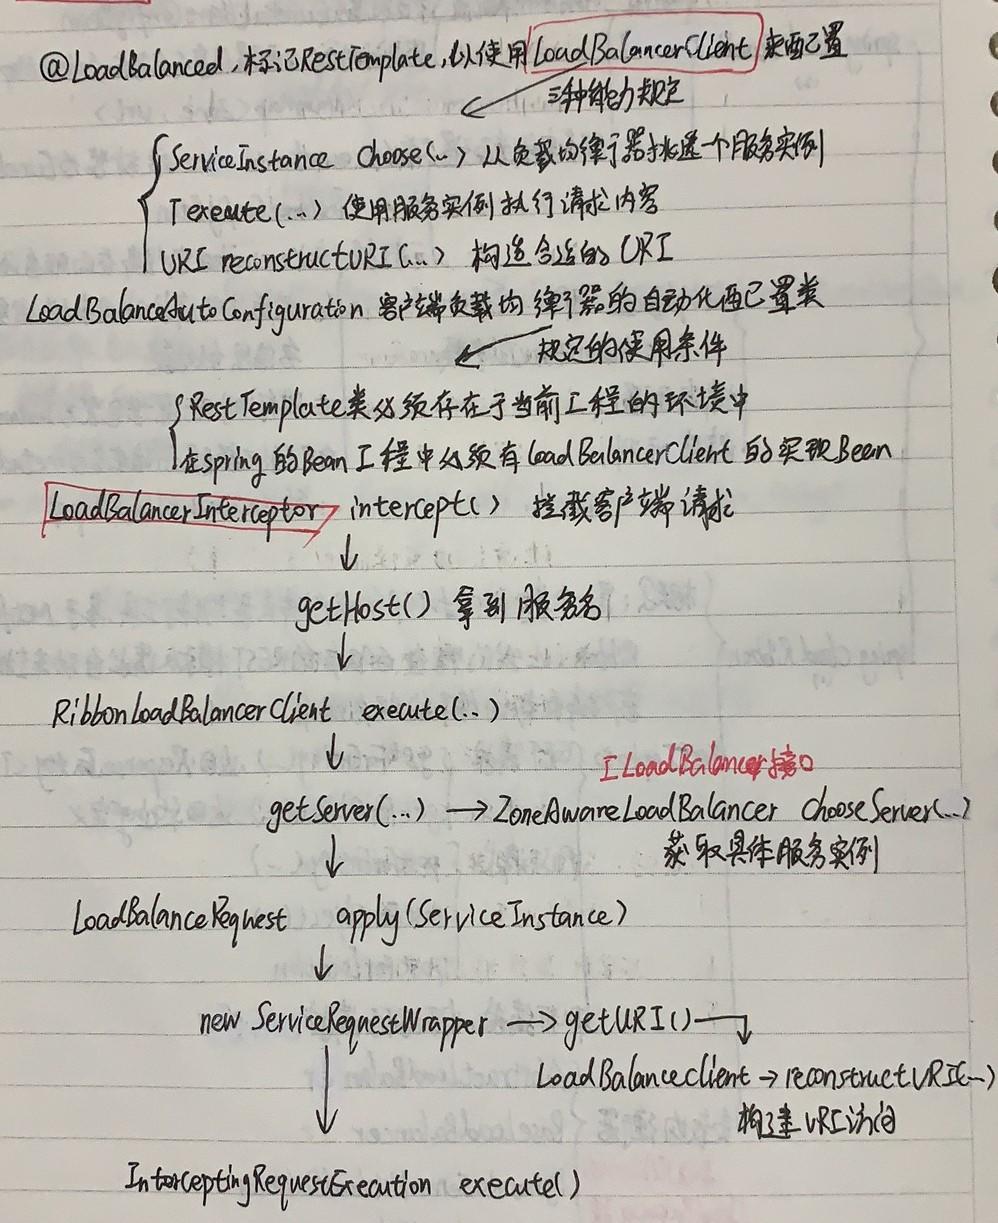 @LoadBalanced,标记RestTemplate,以使用LoadBalancerClient来配置
三种能力规定
ServiceInstance choose(..) 从负载均衡器挑选一个服务实例
T execute(...) 使用服务实例执行请求内容
URI reconstructURI(...) 构造合适的URI
LoadBalanceAutoConfiguration 客户端负载均衡器的自动化配置类
规定的使用条件
RestTemplate类必须存在于当前工程的环境中
在spring的Bean工程中必须有LoadBalancerClient的实现Bean
LoadBalancerInterceptor intercept() 拦截客户端请求
↓
getHost() 拿到服务名
↓
RibbonLoadBalancerClient execute(..)
↓
ILoadBalancer接口
getServer(...) → ZoneAwareLoadBalancer chooseServer(...)
获取具体服务实例
↓
LoadBalanceRequest apply(ServiceInstance)
↓
new ServiceRequestWrapper → getURI()
↓
LoadBalanceclient → reconstructURI(...)
构建URI访问
InterceptingRequestExecution execute()